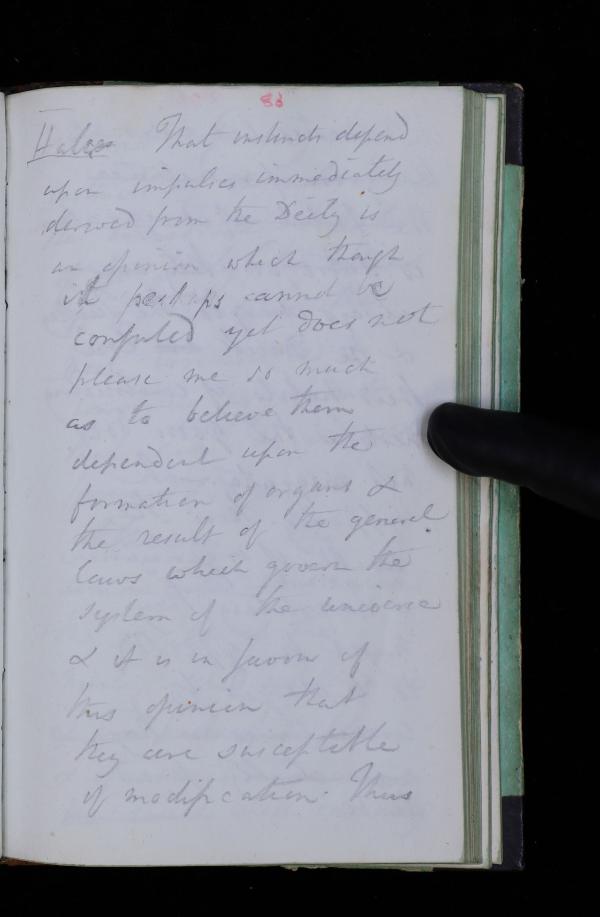 83
Halieus That instincts depend
upon impulses immediately
derived from the Deity is
an opinion which though
it perhaps cannot be
confuted yet does not
please me so much
as to believe them
dependent upon the
formation of organs &
the result of the general
laws which govern the
system of the universe
& it is in favour of
this opinion that
they are susceptible
of modification. Thus